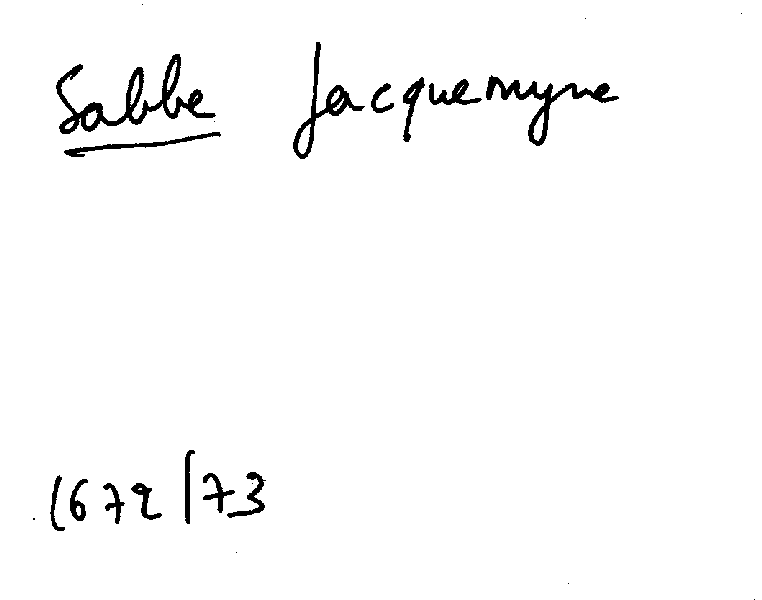 Sabbe Jacquemyne
1672/73